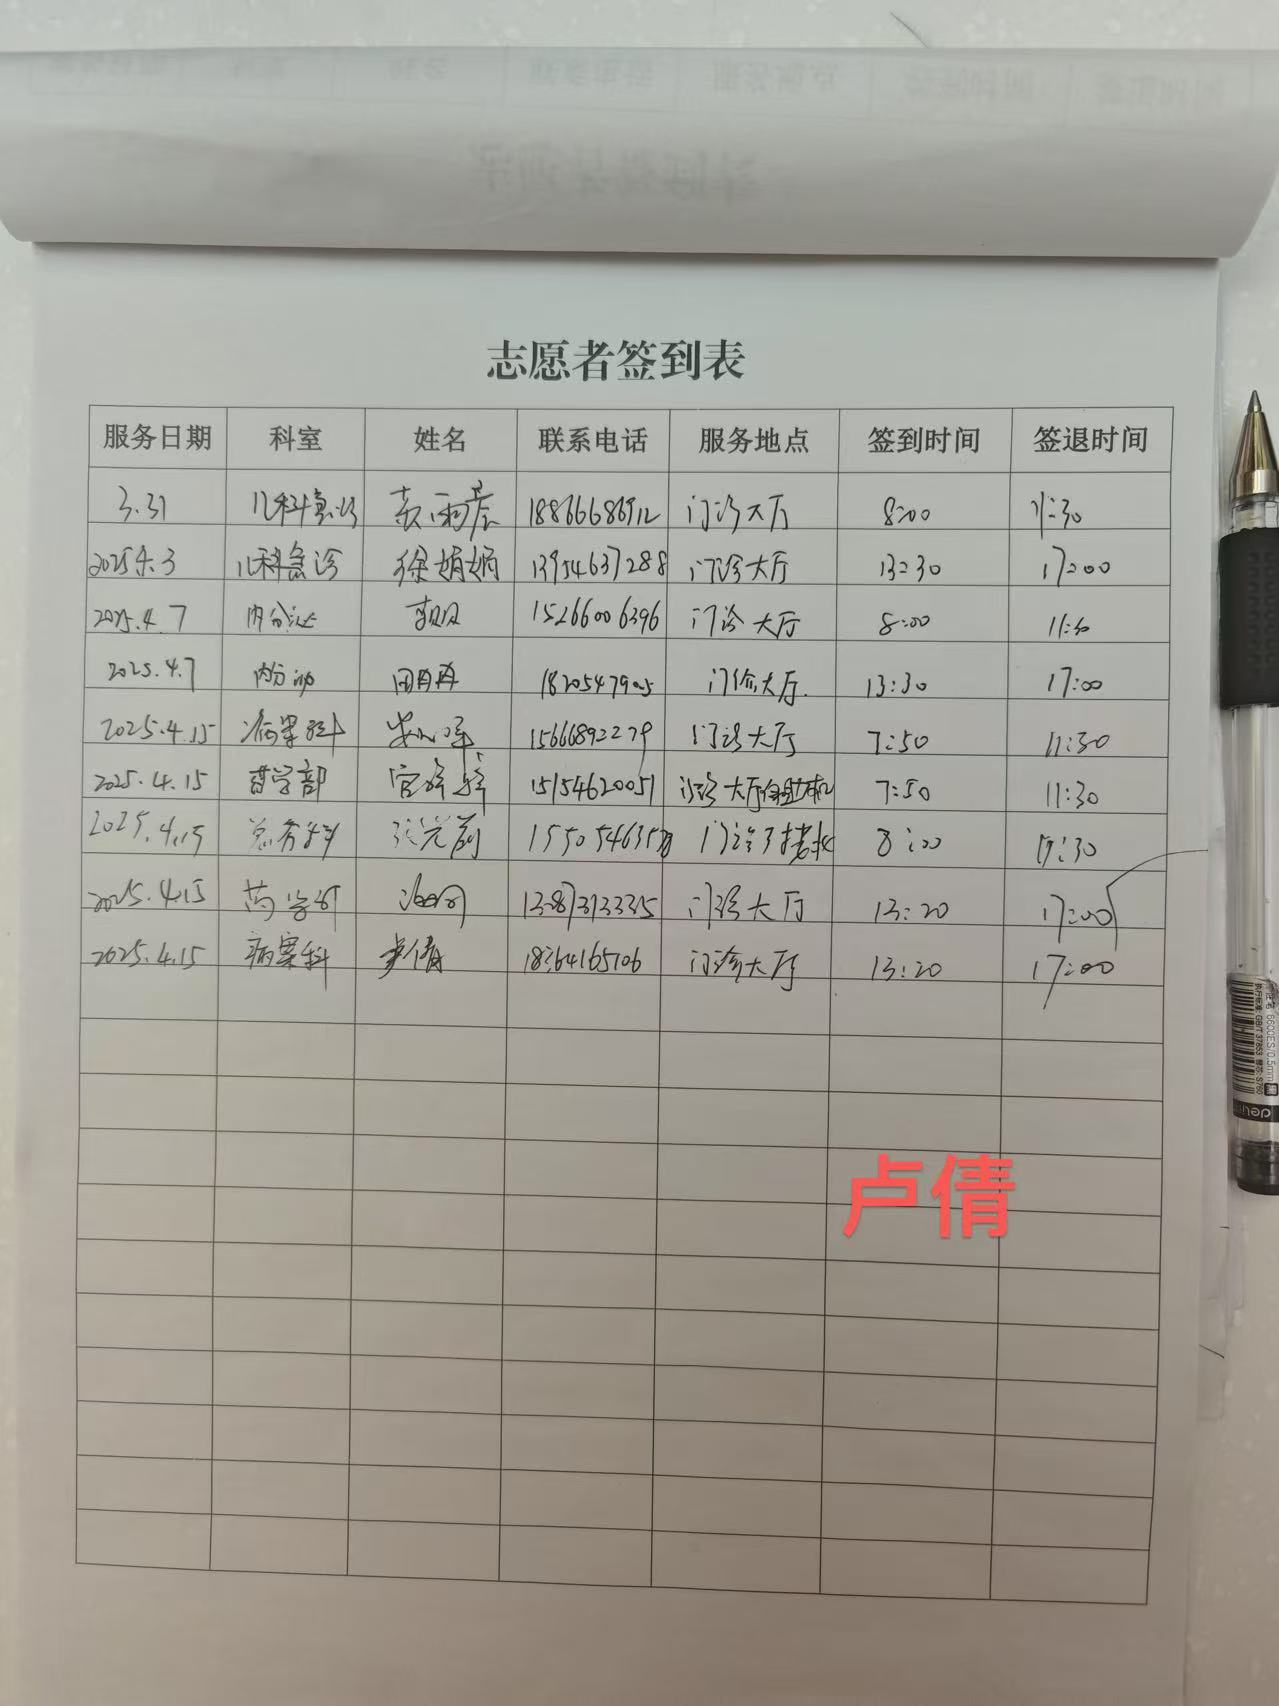 志愿者签到表
服务日期 科室 姓名 联系电话 服务地点 签到时间 签退时间
3.31 儿科急诊 雨 18866686912 门诊大厅 8:00 11:30
2025.4.3 儿科急诊 徐娟娟 13954637288 门诊大厅 13:30 17:00
2025.4.7 内分泌 15266006396 门诊大厅 8:00 11:30
2025.4.7 内分泌 田冉冉 18205479005 门诊大厅. 13:30 17:00
2025.4.15 病案科 15666892279 门诊大厅 7:50 11:30
2025.4.15 药学部 宫 15154620051 门诊大厅自助机 7:50 11:30
2025.4.15 总务科 张 门诊 8:00
2025.4.15 药学部 门诊大厅 13:20 17:00
2025.4.15 病案科 卢倩 18364165106 门诊大厅 13:20 17:00
卢倩